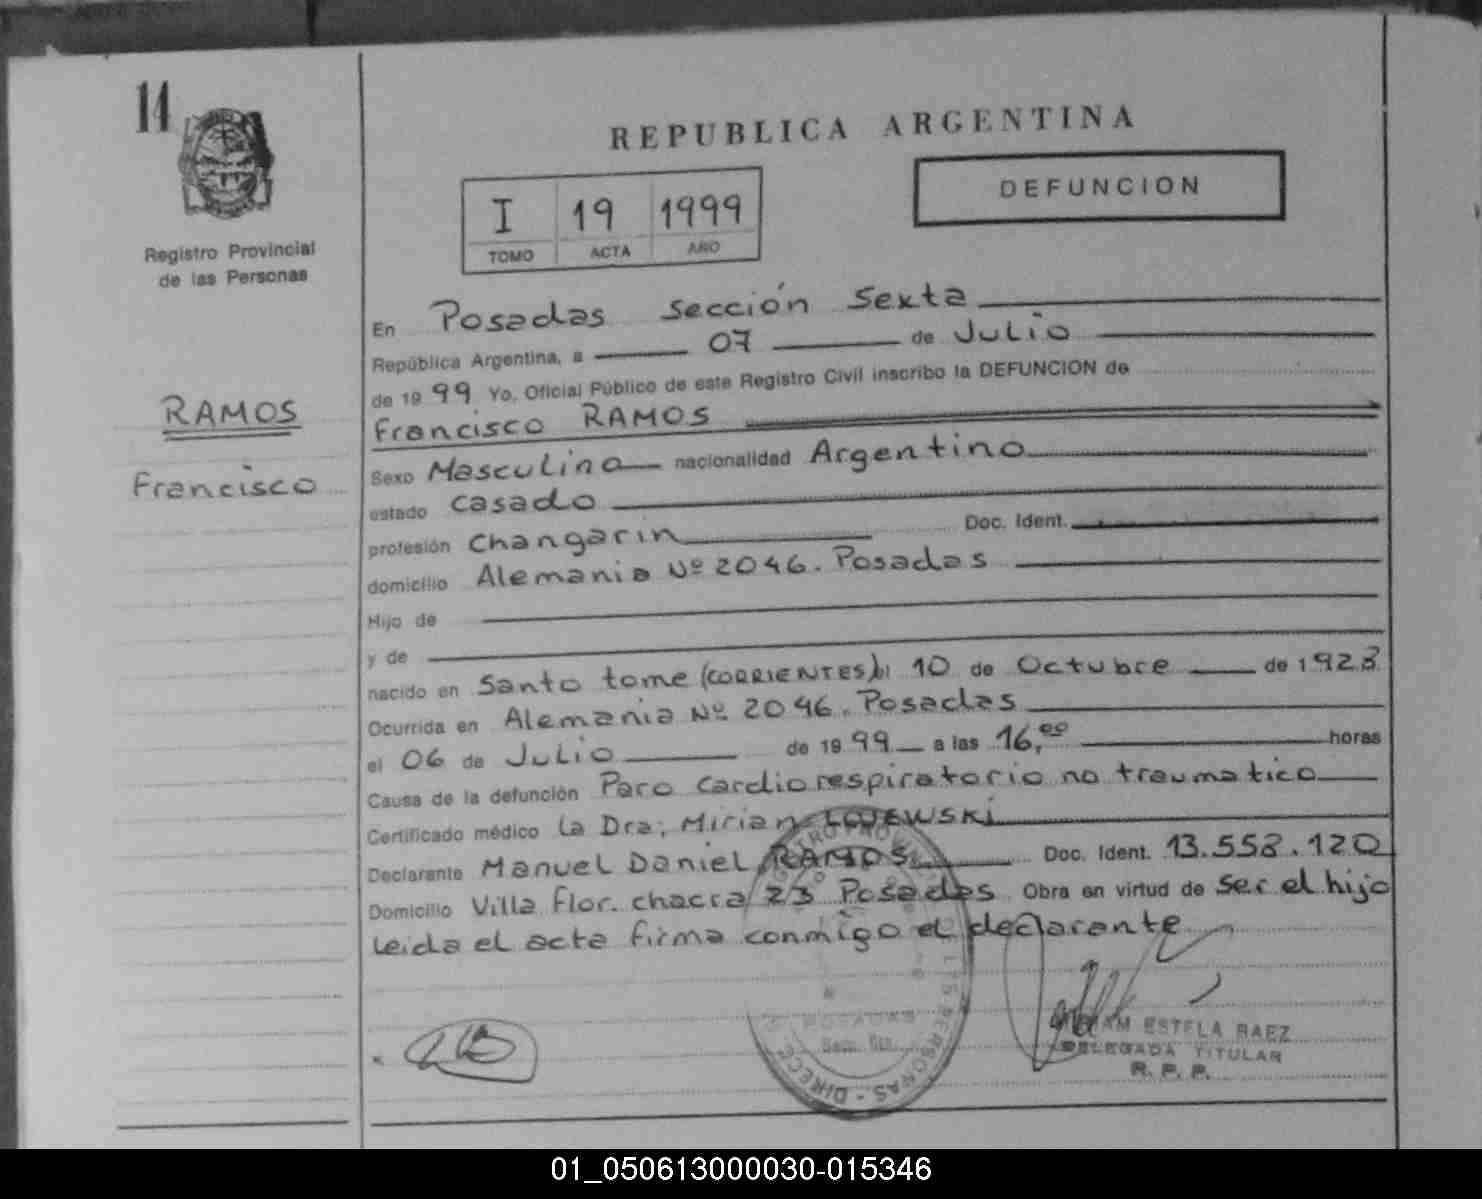 14
REPUBLICA ARGENTINA
DEFUNCION
I 19 1999
TOMO ACTA AÑO
Registro Provincial
de las Personas
RAMOS
Francisco
En Posadas Sección Sexta
República Argentina, a 07 de Julio
de 1999 Yo, Oficial Público de este Registro Civil inscribo la DEFUNCION de
Francisco RAMOS
Sexo Masculino nacionalidad Argentino
estado casado
profesión Changarin Doc. Ident.
domicilio Alemania Nº 2046. Posadas
Hijo de
y de
nacido en Santo tome (CORRIENTES) el 10 de Octubre de 1923
Ocurrida en Alemania Nº 2046. Posadas
el 06 de Julio de 1999 a las 16,00 horas
Causa de la defunción Paro cardiorespiratorio no traumatico
Certificado médico la Dra; Mirian
Declarante Manuel Daniel RAMOS Doc. Ident. 13.558.120
Domicilio Villa Flor. chacra 23 Posadas Obra en virtud de ser el hijo
leida el acta firma conmigo el declarante
POSADAS
MIRIAM ESTELA BAEZ
DELEGADA TITULAR
R. P. P.
01_050613000030-015346